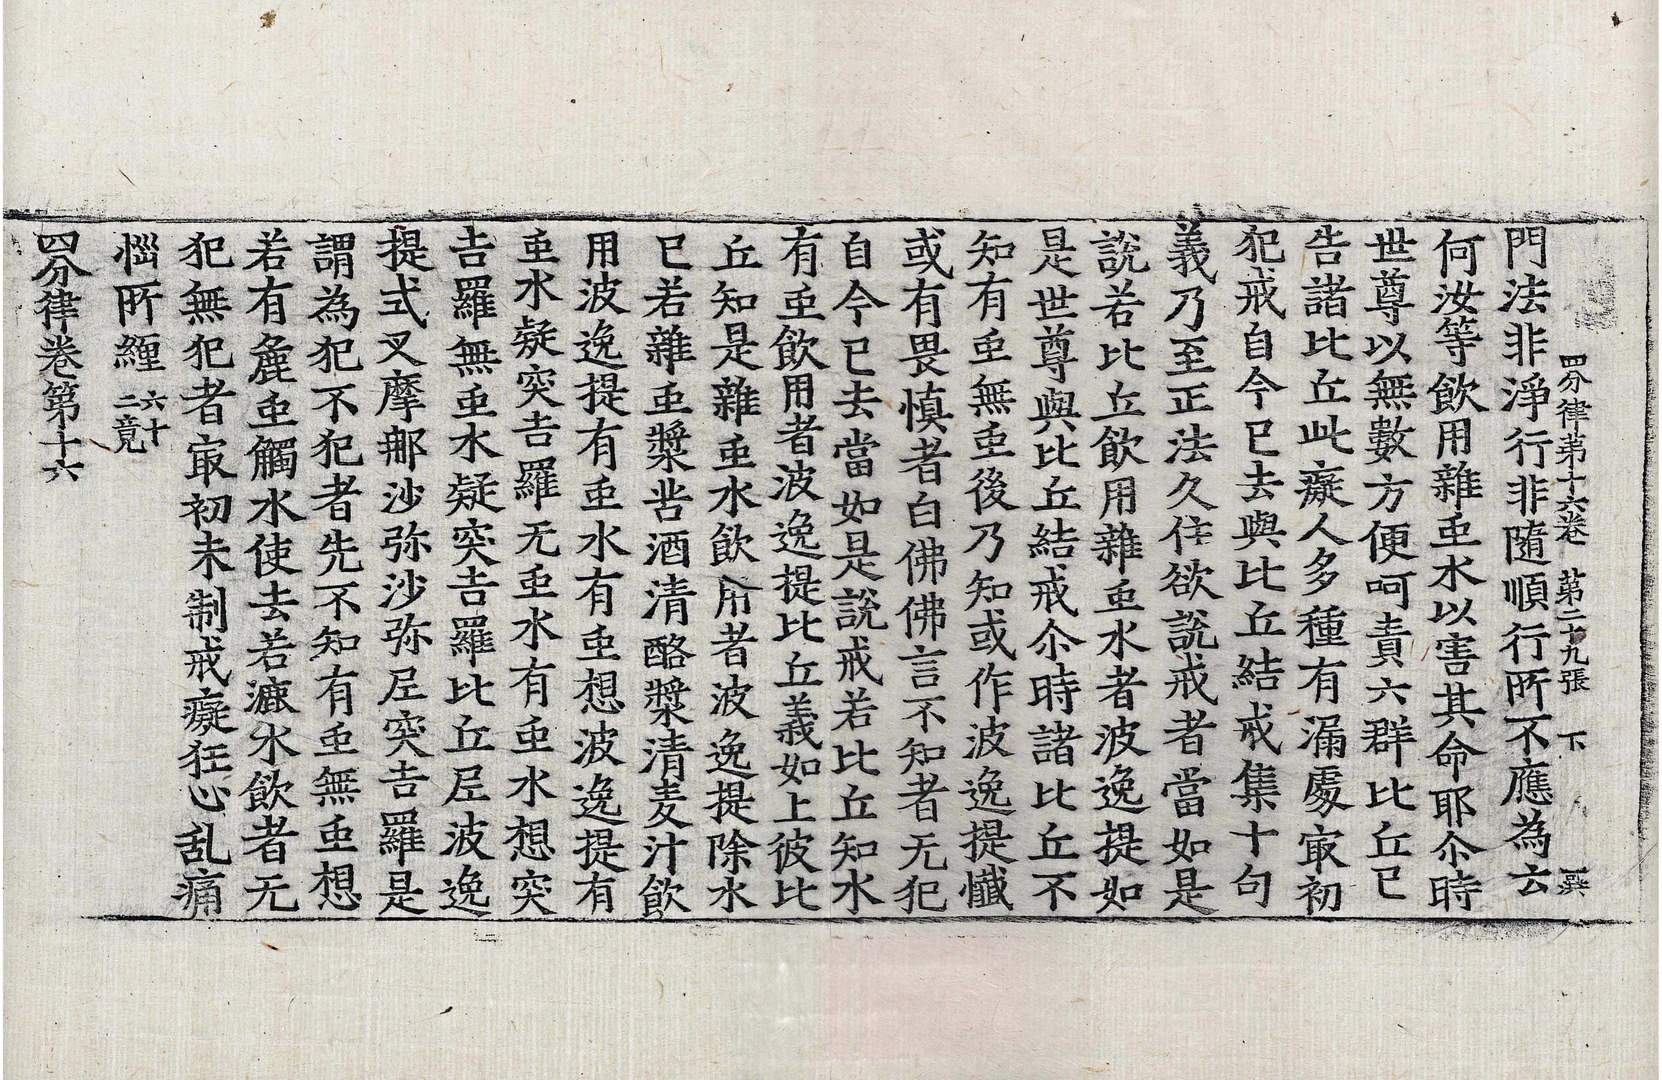 四分律第十六卷 第二十九張 下
門法非淨行非隨順行所不應為云
何汝等飲用雜虫水以害其命耶尒時
世尊以無數方便呵責六群比丘已
告諸比丘此癡人多種有漏處㝡初
犯戒自今已去與比丘結戒集十句
義乃至正法久住欲說戒者當如是
說若比丘飲用雜虫水者波逸提如
是世尊與比丘結戒尒時諸比丘不
知有虫無虫後乃知或作波逸提懺
或有畏慎者白佛佛言不知者无犯
自今已去當如是說戒若比丘知水
有虫飲用者波逸提比丘義如上彼比
丘知是雜虫水飲用者波逸提除水
已若雜虫漿苦酒清酪漿清麦汁飲
用波逸提有虫水有虫想波逸提有
虫水疑突吉羅无虫水有虫水想突
吉羅無虫水疑突吉羅比丘尼波逸
提式叉摩那沙弥沙弥尼突吉羅是
謂為犯不犯者先不知有虫無虫想
若有麁虫觸水使去若漉水飲者无
犯無犯者㝡初未制戒癡狂心乱痛
惱所纏 六十二竟
四分律卷第十六